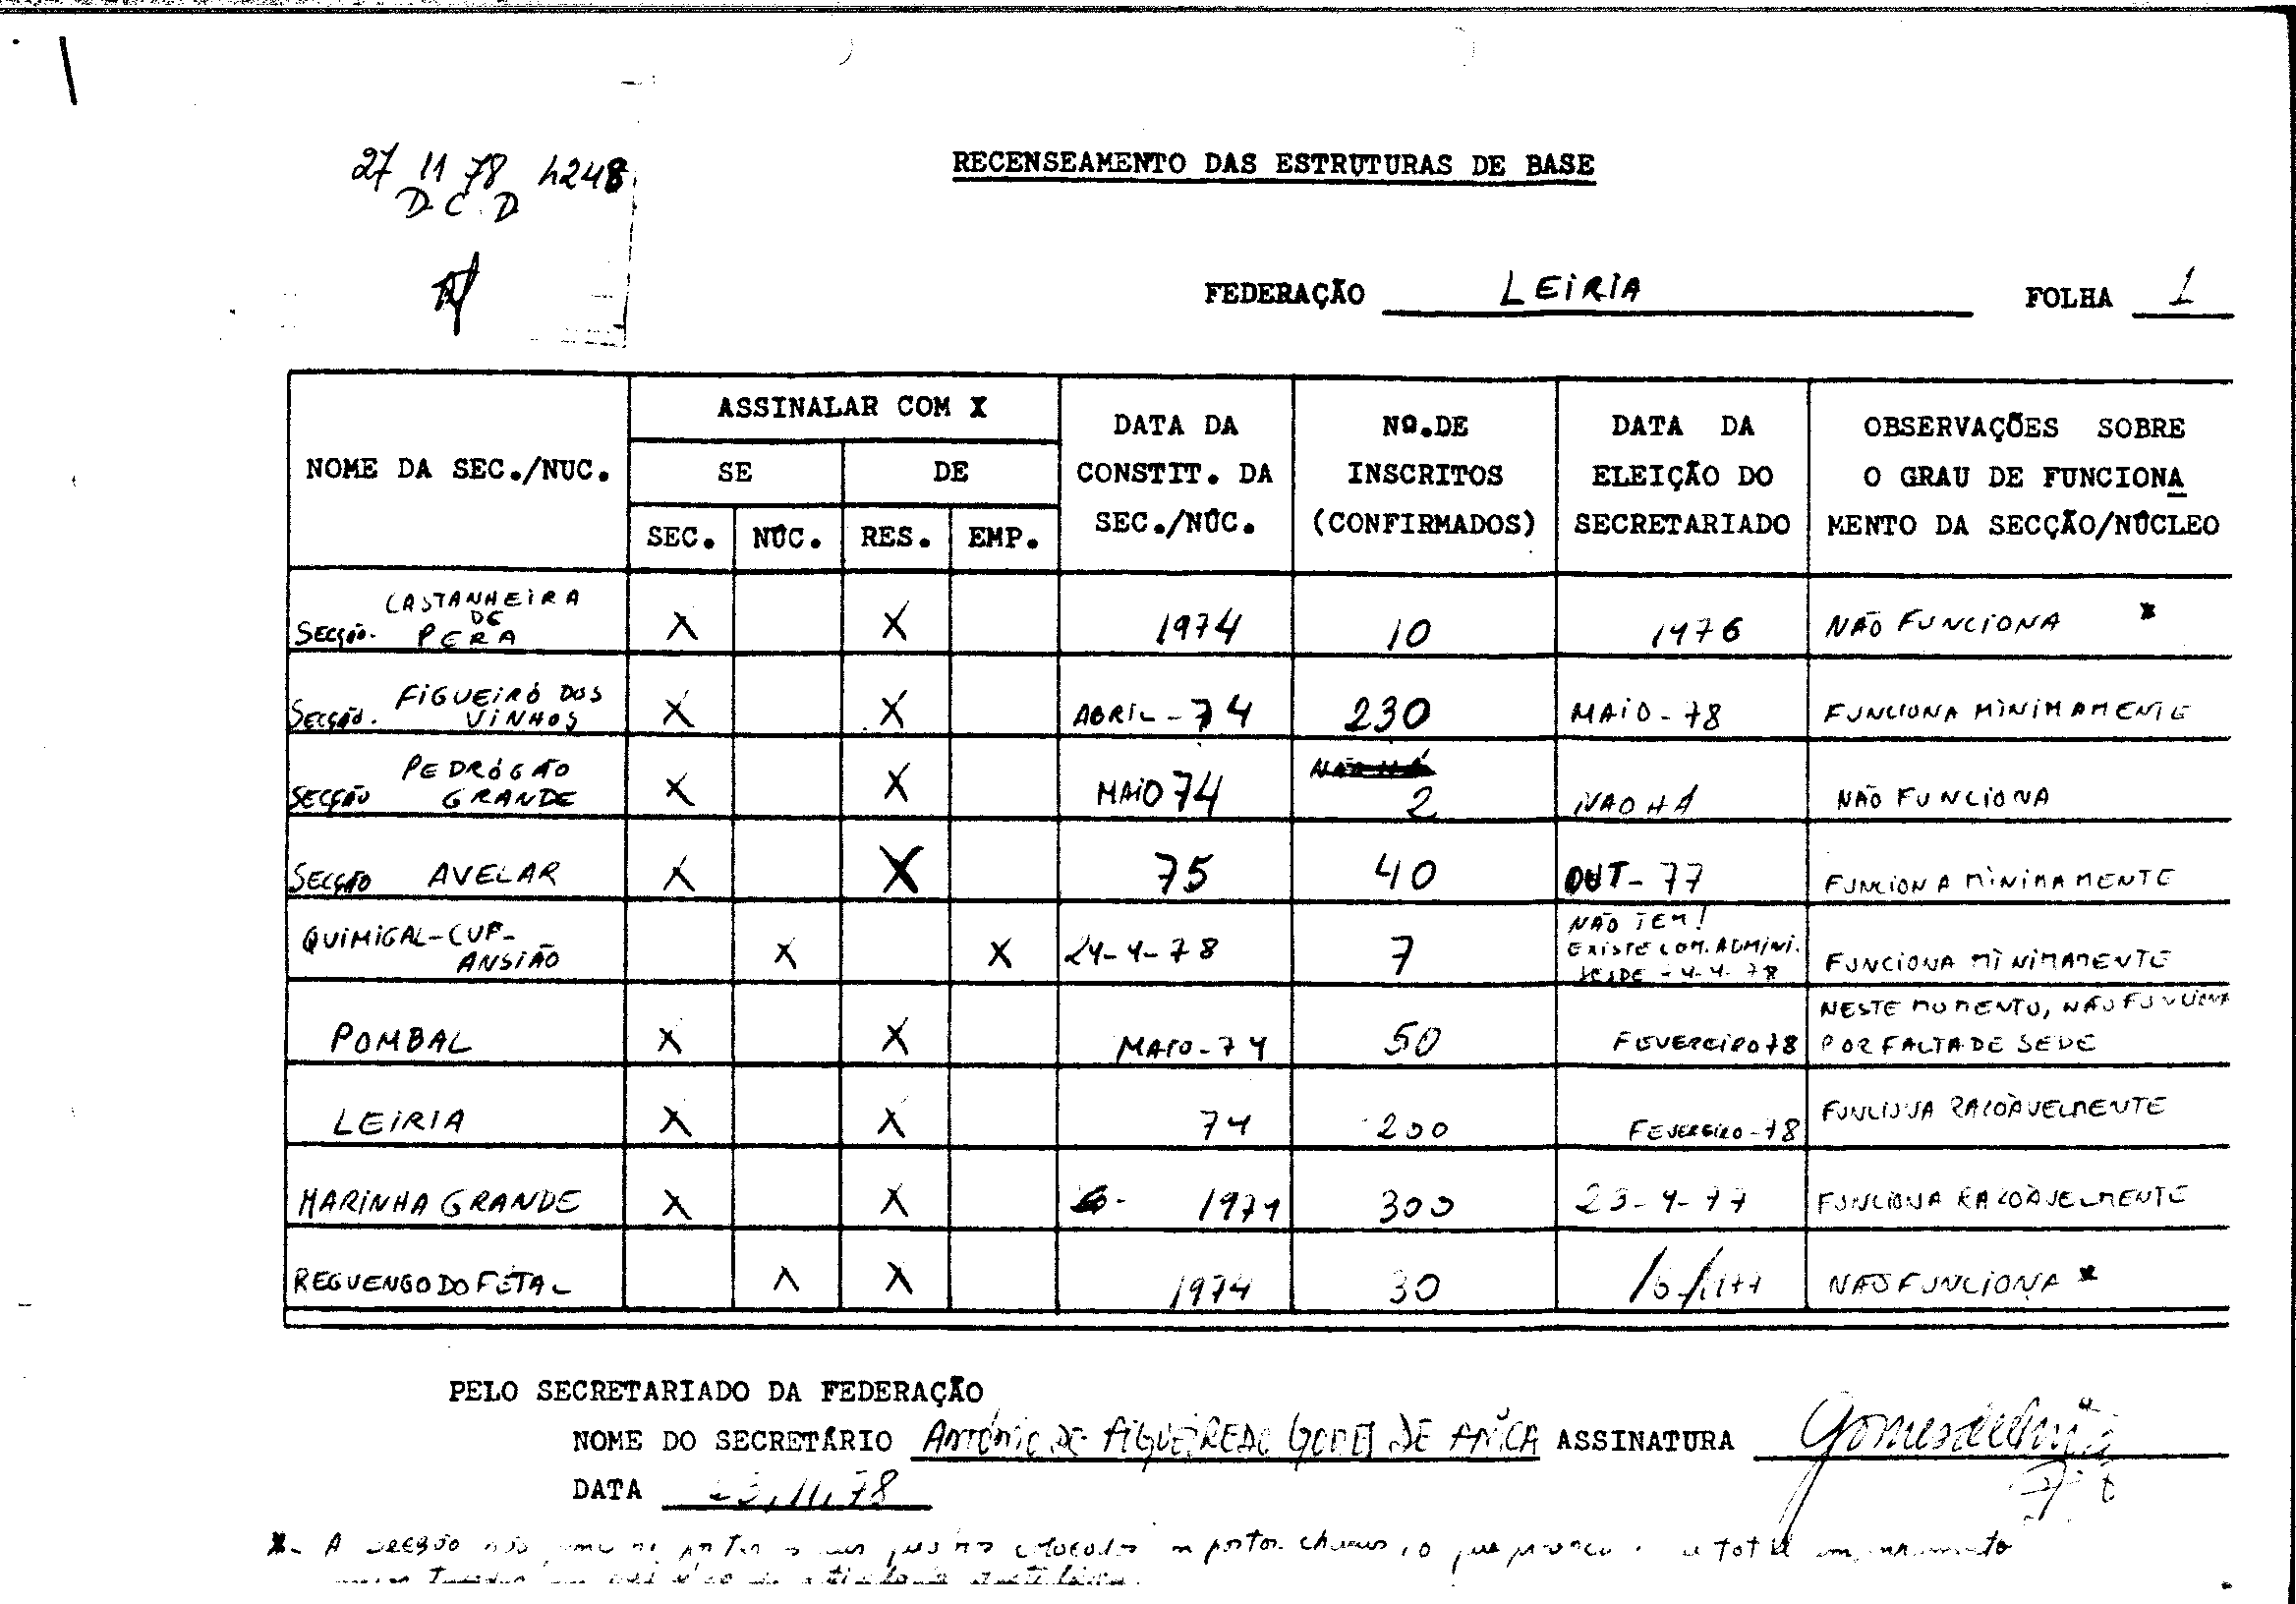 27 11 78 4248
D.C.D
RECENSEAMENTO DAS ESTRUTURAS DE BASE
FEDERAÇÃO LEIRIA FOLHA 1
NOME DA SEC./NUC.
ASSINALAR COM X
SE DE
SEC. NÚC. RES. EMP.
DATA DA
CONSTIT. DA
SEC./NÚC.
Nº.DE
INSCRITOS
(CONFIRMADOS)
DATA DA
ELEIÇÃO DO
SECRETARIADO
OBSERVAÇÕES SOBRE
O GRAU DE FUNCIONA
MENTO DA SECÇÃO/NÚCLEO
CASTANHEIRA
DE
SECÇÃO. PERA X X 1974 10 1976 NÃO FUNCIONA *
FIGUEIRÓ DOS
SECÇÃO. VINHOS X X ABRIL-74 230 MAIO-78 FUNCIONA MINIMAMENTE
PEDRÓGÃO
SECÇÃO GRANDE X X MAIO 74 2 NÃO HÁ NÃO FUNCIONA
SECÇÃO AVELAR X X 75 40 OUT-77 FUNCIONA MINIMAMENTE
QUIMIGAL-CUF-
ANSIÃO X X 24-4-78 7 NÃO TEM!
EXISTE COM. ADMINI.
DESDE -4-4-78
FUNCIONA MINIMAMENTE
POMBAL X X MAIO-74 50 FEVEREIRO 78 NESTE MOMENTO, NÃO FUNCIONA
POR FALTA DE SEDE
LEIRIA X X 74 200 FEVEREIRO-78 FUNCIONA RAZOÀVELMENTE
MARINHA GRANDE X X 1974 300 23-4-77 FUNCIONA RAZOÀVELMENTE
REGUENGO DO FÉTAL X X 1974 30 NÃO FUNCIONA *
PELO SECRETARIADO DA FEDERAÇÃO
NOME DO SECRETÁRIO ANTÓNIO DE FIGUEIREDO GOMES DE ASSINATURA
DATA 23.11.78
*- A SECÇÃO não